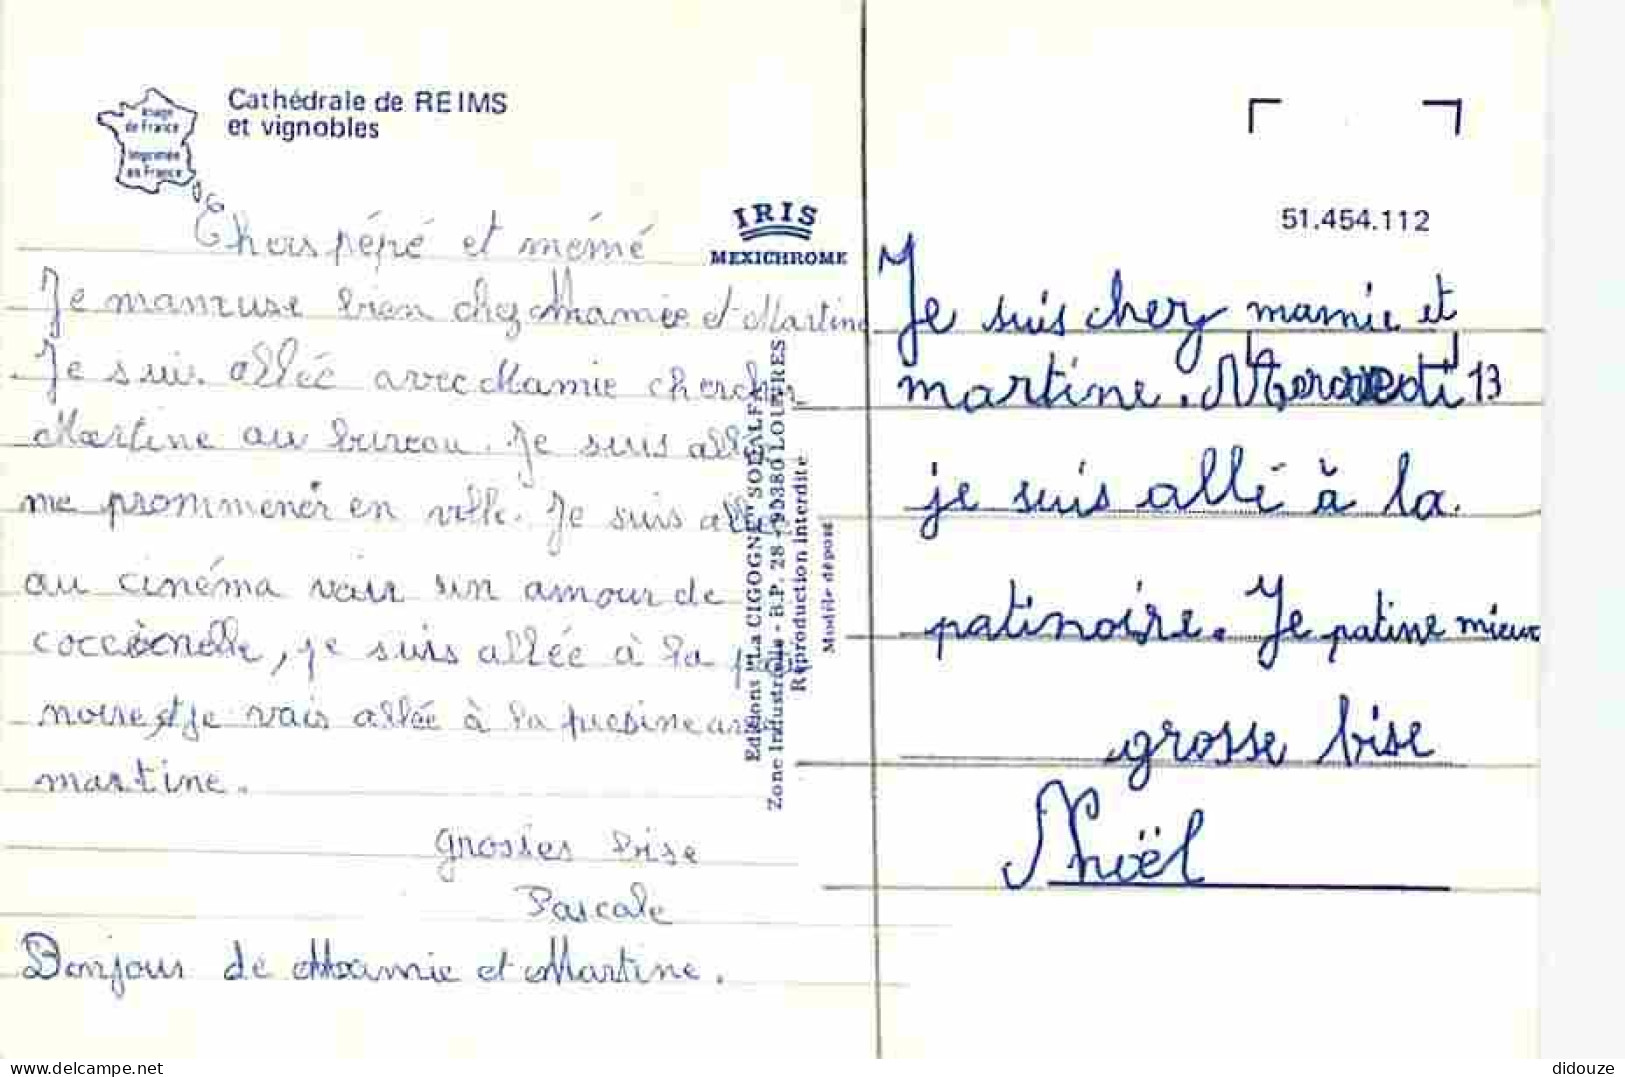 Cathédrale de REIMS
et vignobles
Image
de France
Imprimée
en France
IRIS
MEXICHROME
51.454.112
Chers pépé et mémé
Je m'amuse bien chez Mamie et Martine
Je suis allée avec Mamie chercher
Martine au bureau. Je suis allée
me prommener en ville. Je suis allée
au cinéma voir un amour de
coccinelle, je suis allée à la pati
noire et je vais allée à la piesine avec
martine.
grosses bise
Pascale
Bonjour de Mamie et Martine.
Editions "LA CIGOGNE"
Zone Industrielle - B.P. 28 - 95380 LOUVRES
Reproduction interdite
Modèle déposé
Je suis chez mamie et
martine. Mercredi 13
je suis allé à la
patinoire. Je patine mieux
grosse bise
Noël
delcampe.net
didouze